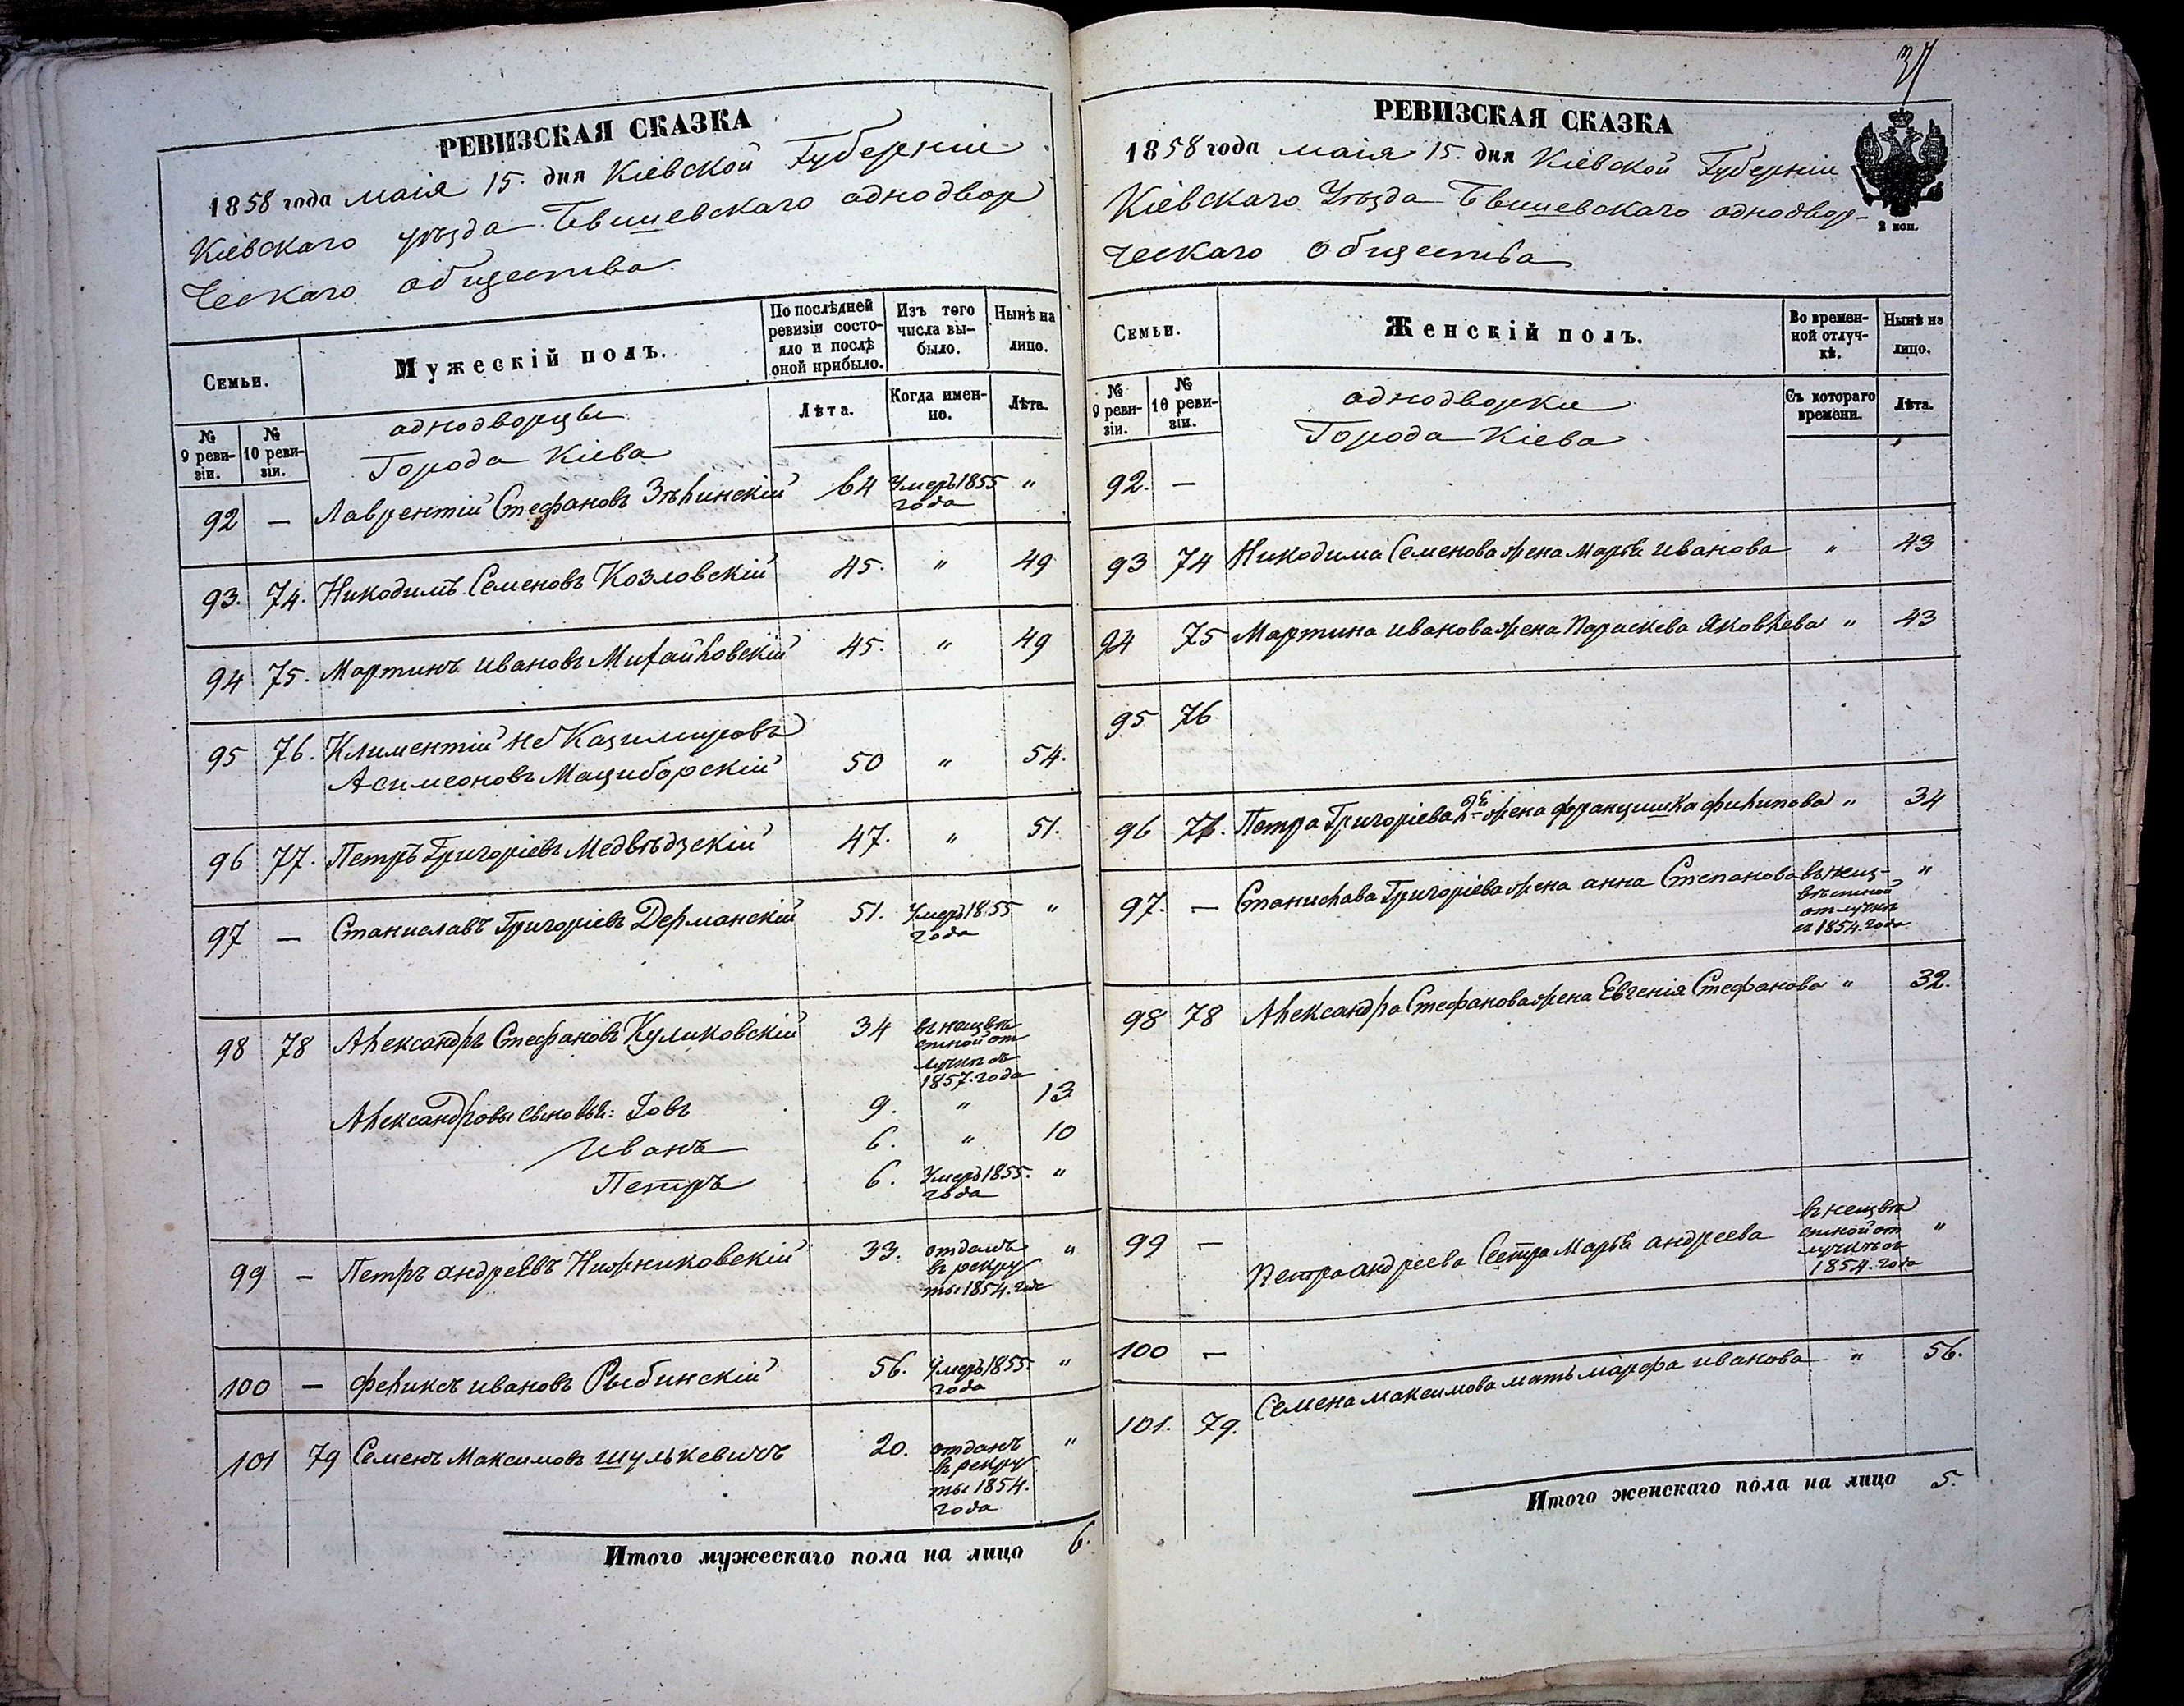 РЕВИЗСКАЯ СКАЗКА
1858 года маія 15. дня Кіевской Губерніи
Кіевскаго уѣзда Бвишевскаго однодвор
ческаго общества
Семьи.
Мужескій полъ.
По послѣдней ревизіи состояло и послѣ оной прибыло.
Изъ того числа выбыло.
Нынѣ на лицо.
№ 9 ревизіи.
№ 10 ревизіи.
Лѣта.
Когда именно.
Лѣта.
однодворцы
Города Кіева
92 — Лаврентій Стефановъ Зѣлинскій 64 Умеръ 1855 года "
93. 74. Никодимъ Семеновъ Козловскій 45. " 49
94 75. Мартинъ Ивановъ Михайловскій 45. " 49
95 76. Климентій не Казимировъ
Асимеоновъ Мациборскій 50 " 54.
96 77. Петръ Григоріевъ Медвѣдзскій 47. " 51.
97 — Станиславъ Григоріевъ Дерманскій 51. Умеръ 1855 года "
98 78 Александръ Стефановъ Куликовскій 34 въ неизвѣстной отлучкѣ съ 1857. года
Александровы сыновья: Іовъ 9. " 13
Иванъ 6. " 10
Петръ 6. Умеръ 1855. года "
99 — Петръ Андреевъ Нижниковскій 33. отданъ въ рекруты 1854. года "
100 — Феликсъ Ивановъ Рыбинскій 56. Умеръ 1855. года "
101 79 Семенъ Максимовъ Шулькевичъ 20. отданъ въ рекруты 1854. года "
Итого мужескаго пола на лицо 6.
37
РЕВИЗСКАЯ СКАЗКА
1858 года маія 15. дня Кіевской Губерніи
Кіевскаго Уѣзда Бвишевскаго однодвор-
ческаго общества
2 коп.
Семьи.
Женскій полъ.
Во временной отлучкѣ.
Нынѣ на лицо.
№ 9 ревизіи.
№ 10 ревизіи.
Съ котораго времени.
Лѣта.
однодворки
Города Кіева
92. —
93 74 Никодима Семенова жена Марья Иванова " 43
94 75 Мартина Иванова жена Параскева Яковлева " 43
95 76
96 77. Петра Григоріева 2я жена Францишка Филипова " 34
97. — Станислава Григоріева жена Анна Степанова въ неизвѣстной отлучкѣ съ 1854. года "
98 78 Александра Стефанова жена Евгенія Стефанова " 32.
99 — Петра Андреева сестра Марья Андреева въ неизвѣстной отлучкѣ съ 1854. года "
100 —
101. 79. Семена Максимова мать Марфа Иванова " 56.
Итого женскаго пола на лицо 5.